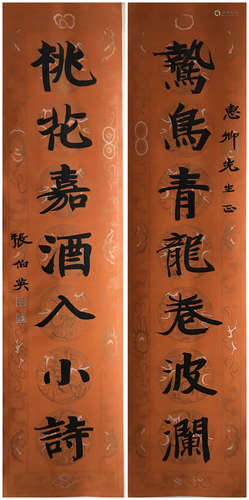 惠卿先生正
鷙鳥青龍卷波瀾
桃花嘉酒入小詩
張伯英